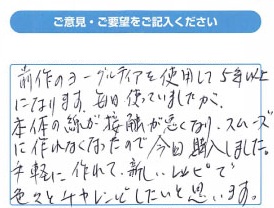 ご意見・ご要望をご記入ください
前作のヨーグルティアを使用して5年以上
になります。毎日使っていましたが、
本体の線が接触が悪くなり、スムーズ
に作れなくなったので今回購入しました。
手軽に作れて、新しいレシピで
色々とチャレンジしたいと思います。